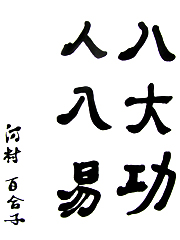 八大功
人入易
河村 百合子